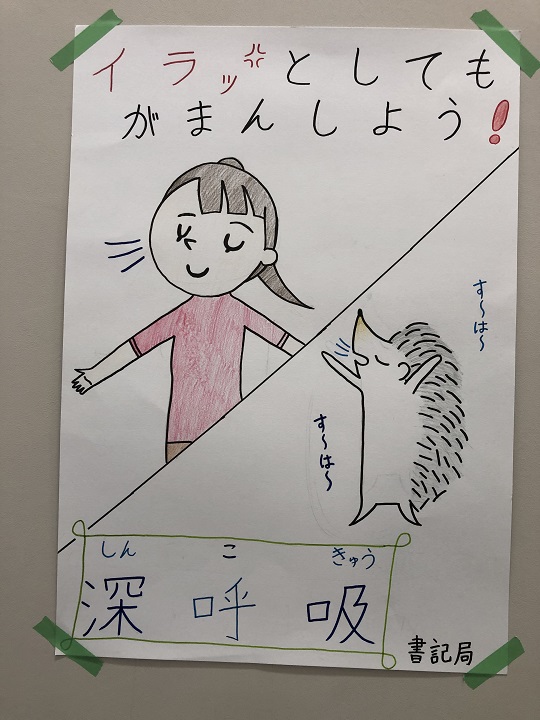 イラッとしても
がまんしよう!
す～は～
す～は～
しん こ きゅう
深呼吸
書記局